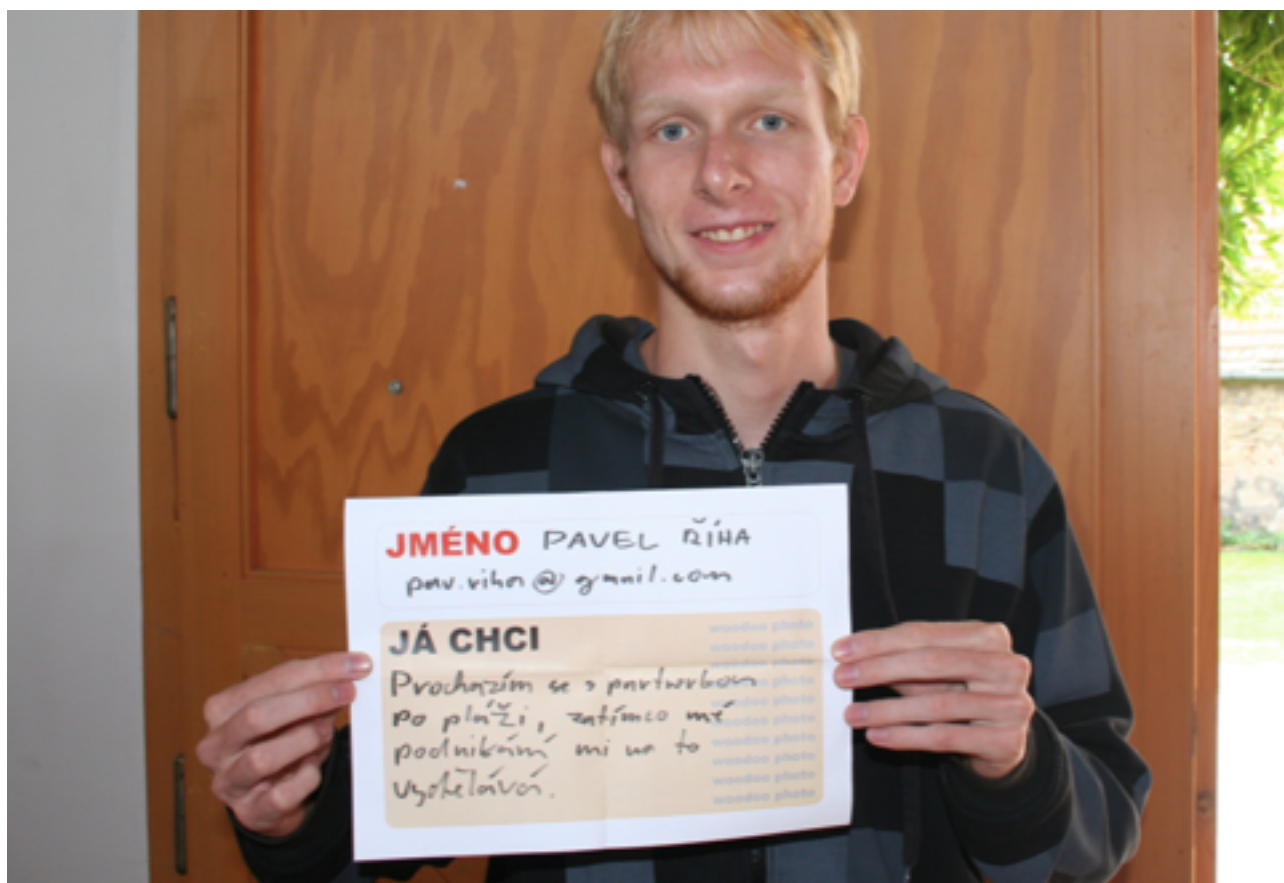 JMÉNO PAVEL ŘÍHA
pav.riha@gmail.com
JÁ CHCI
Procházím se s partnerkou
po pláži, zatímco mé
podnikání mi na to
vydělává.
woodoo photo
woodoo photo
woodoo photo
woodoo photo
woodoo photo
woodoo photo
woodoo photo
woodoo photo